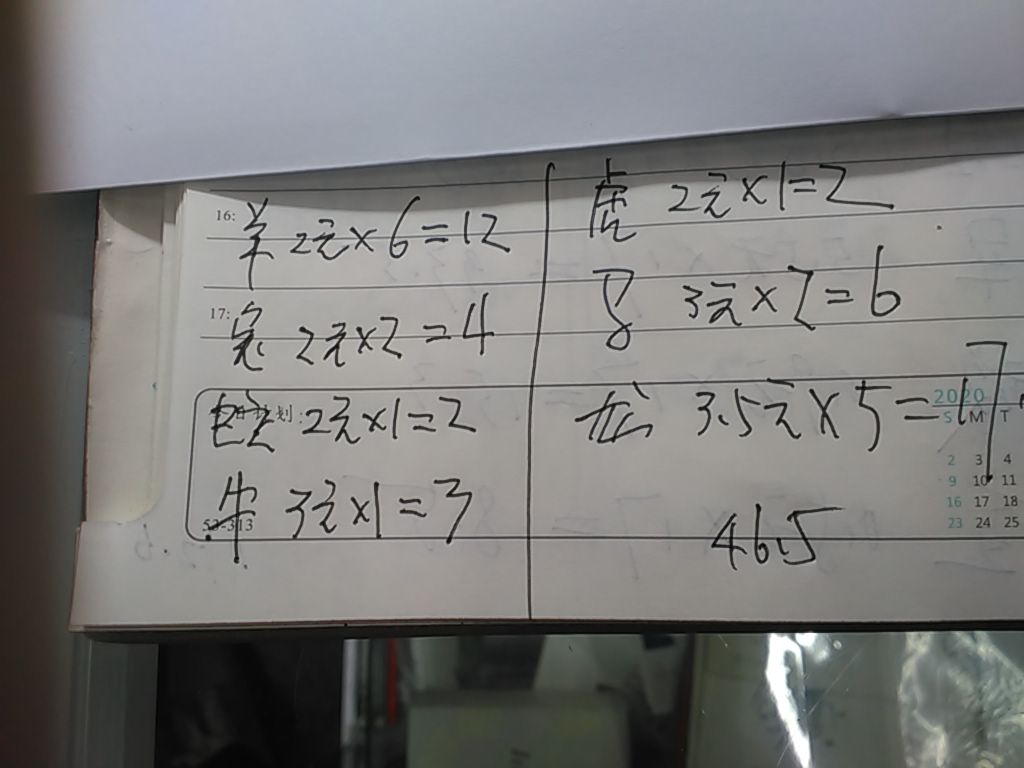 16: 羊 2元×6=12
17: 兔 2元×2=4
划: 2元×1=2
牛 3元×1=3
53-313
虎 2元×1=2
马 3元×2=6
龙 3.5元×5=17.
46.5
2020
S M T
2 3 4
9 10 11
16 17 18
23 24 25